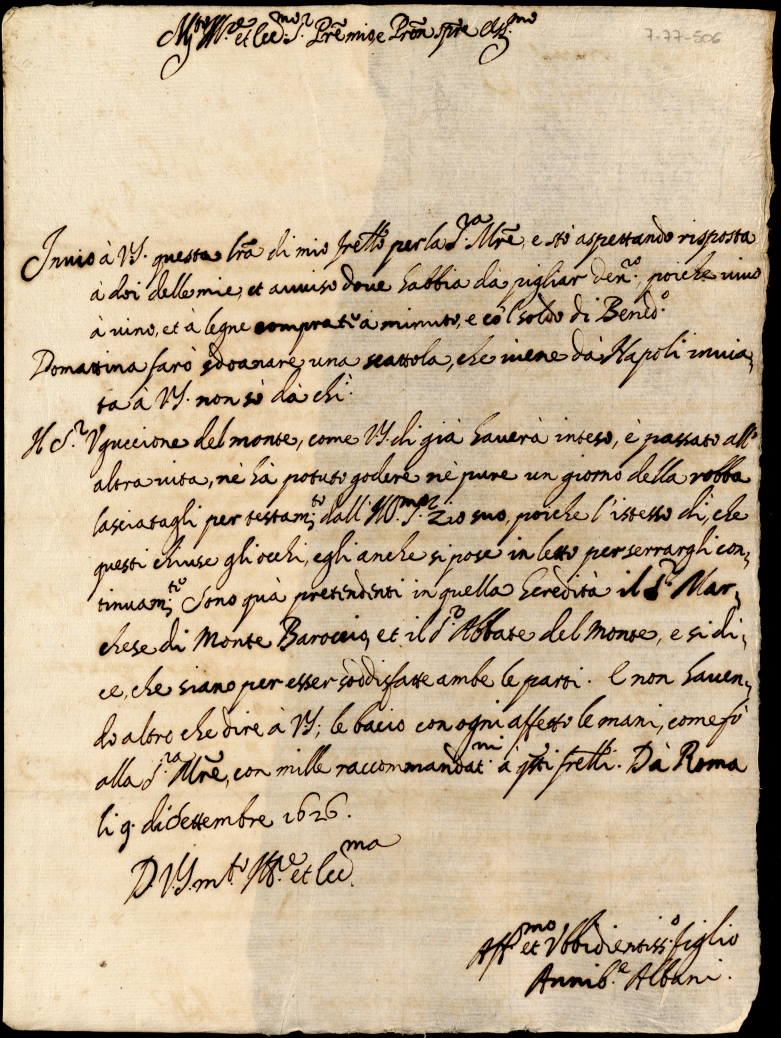 M.to Ill.re et Ecc.mo S.r P̃re mio, e Prõn sp̃re Oss.mo
7-77-506
Invio à V.S. questa l̃ra di mio frett̃o per la S.ra M̃re, e stò aspettando risposta
à doi delle mie, et avviso dove habbia da pigliar den.ri, poiche vivo
à vino, et à legne comprate à minuto, e co'l soldo di Bened.o
Domattina farò sdoanare una scattola, che viene dà Napoli invia,
ta à V.S. non sò da chi.
Il S.r Uguccione del monte, come V.S. di già haverà inteso, è passato all'
altra vita, nè hà potuto godere nè pure un giorno della robba
lasciatagli per testam.to dall' Ill.mo S.r Zio suo, poiche l'istesso dì, che
questi chiuse gli occhi, egli anche si pose in letto per serrargli con,
tinuam.te Sono quà pretendenti in quella heredità il S.r Mar,
chese di Monte Baroccio, et il S.r Abbate del Monte, e si di,
ce, che siano per esser sodisfatte ambe le parti. E non haven,
do altro che dire à V.S; le bacio con ogni affetto le mani, come fò
alla S.ra M̃re, con mille raccommandat.ni à q̃sti fretl̃li. Dà Roma
li 9. di Settembre 1626.
D. V.S. m.to Ill.re et Ecc.ma
Aff.mo et Ubbidientiss.o figlio
Annib.e Albani.